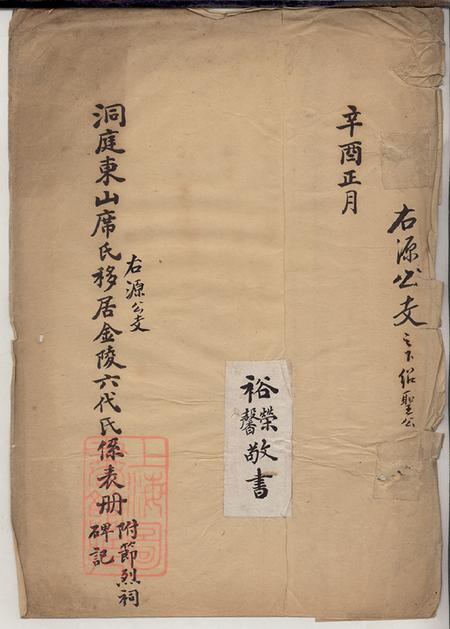 右源公支之下紹聖公
辛酉正月
裕榮馨敬書
右源公支
洞庭東山席氏移居金陵六代氏係表册附節烈祠碑記
上海圖